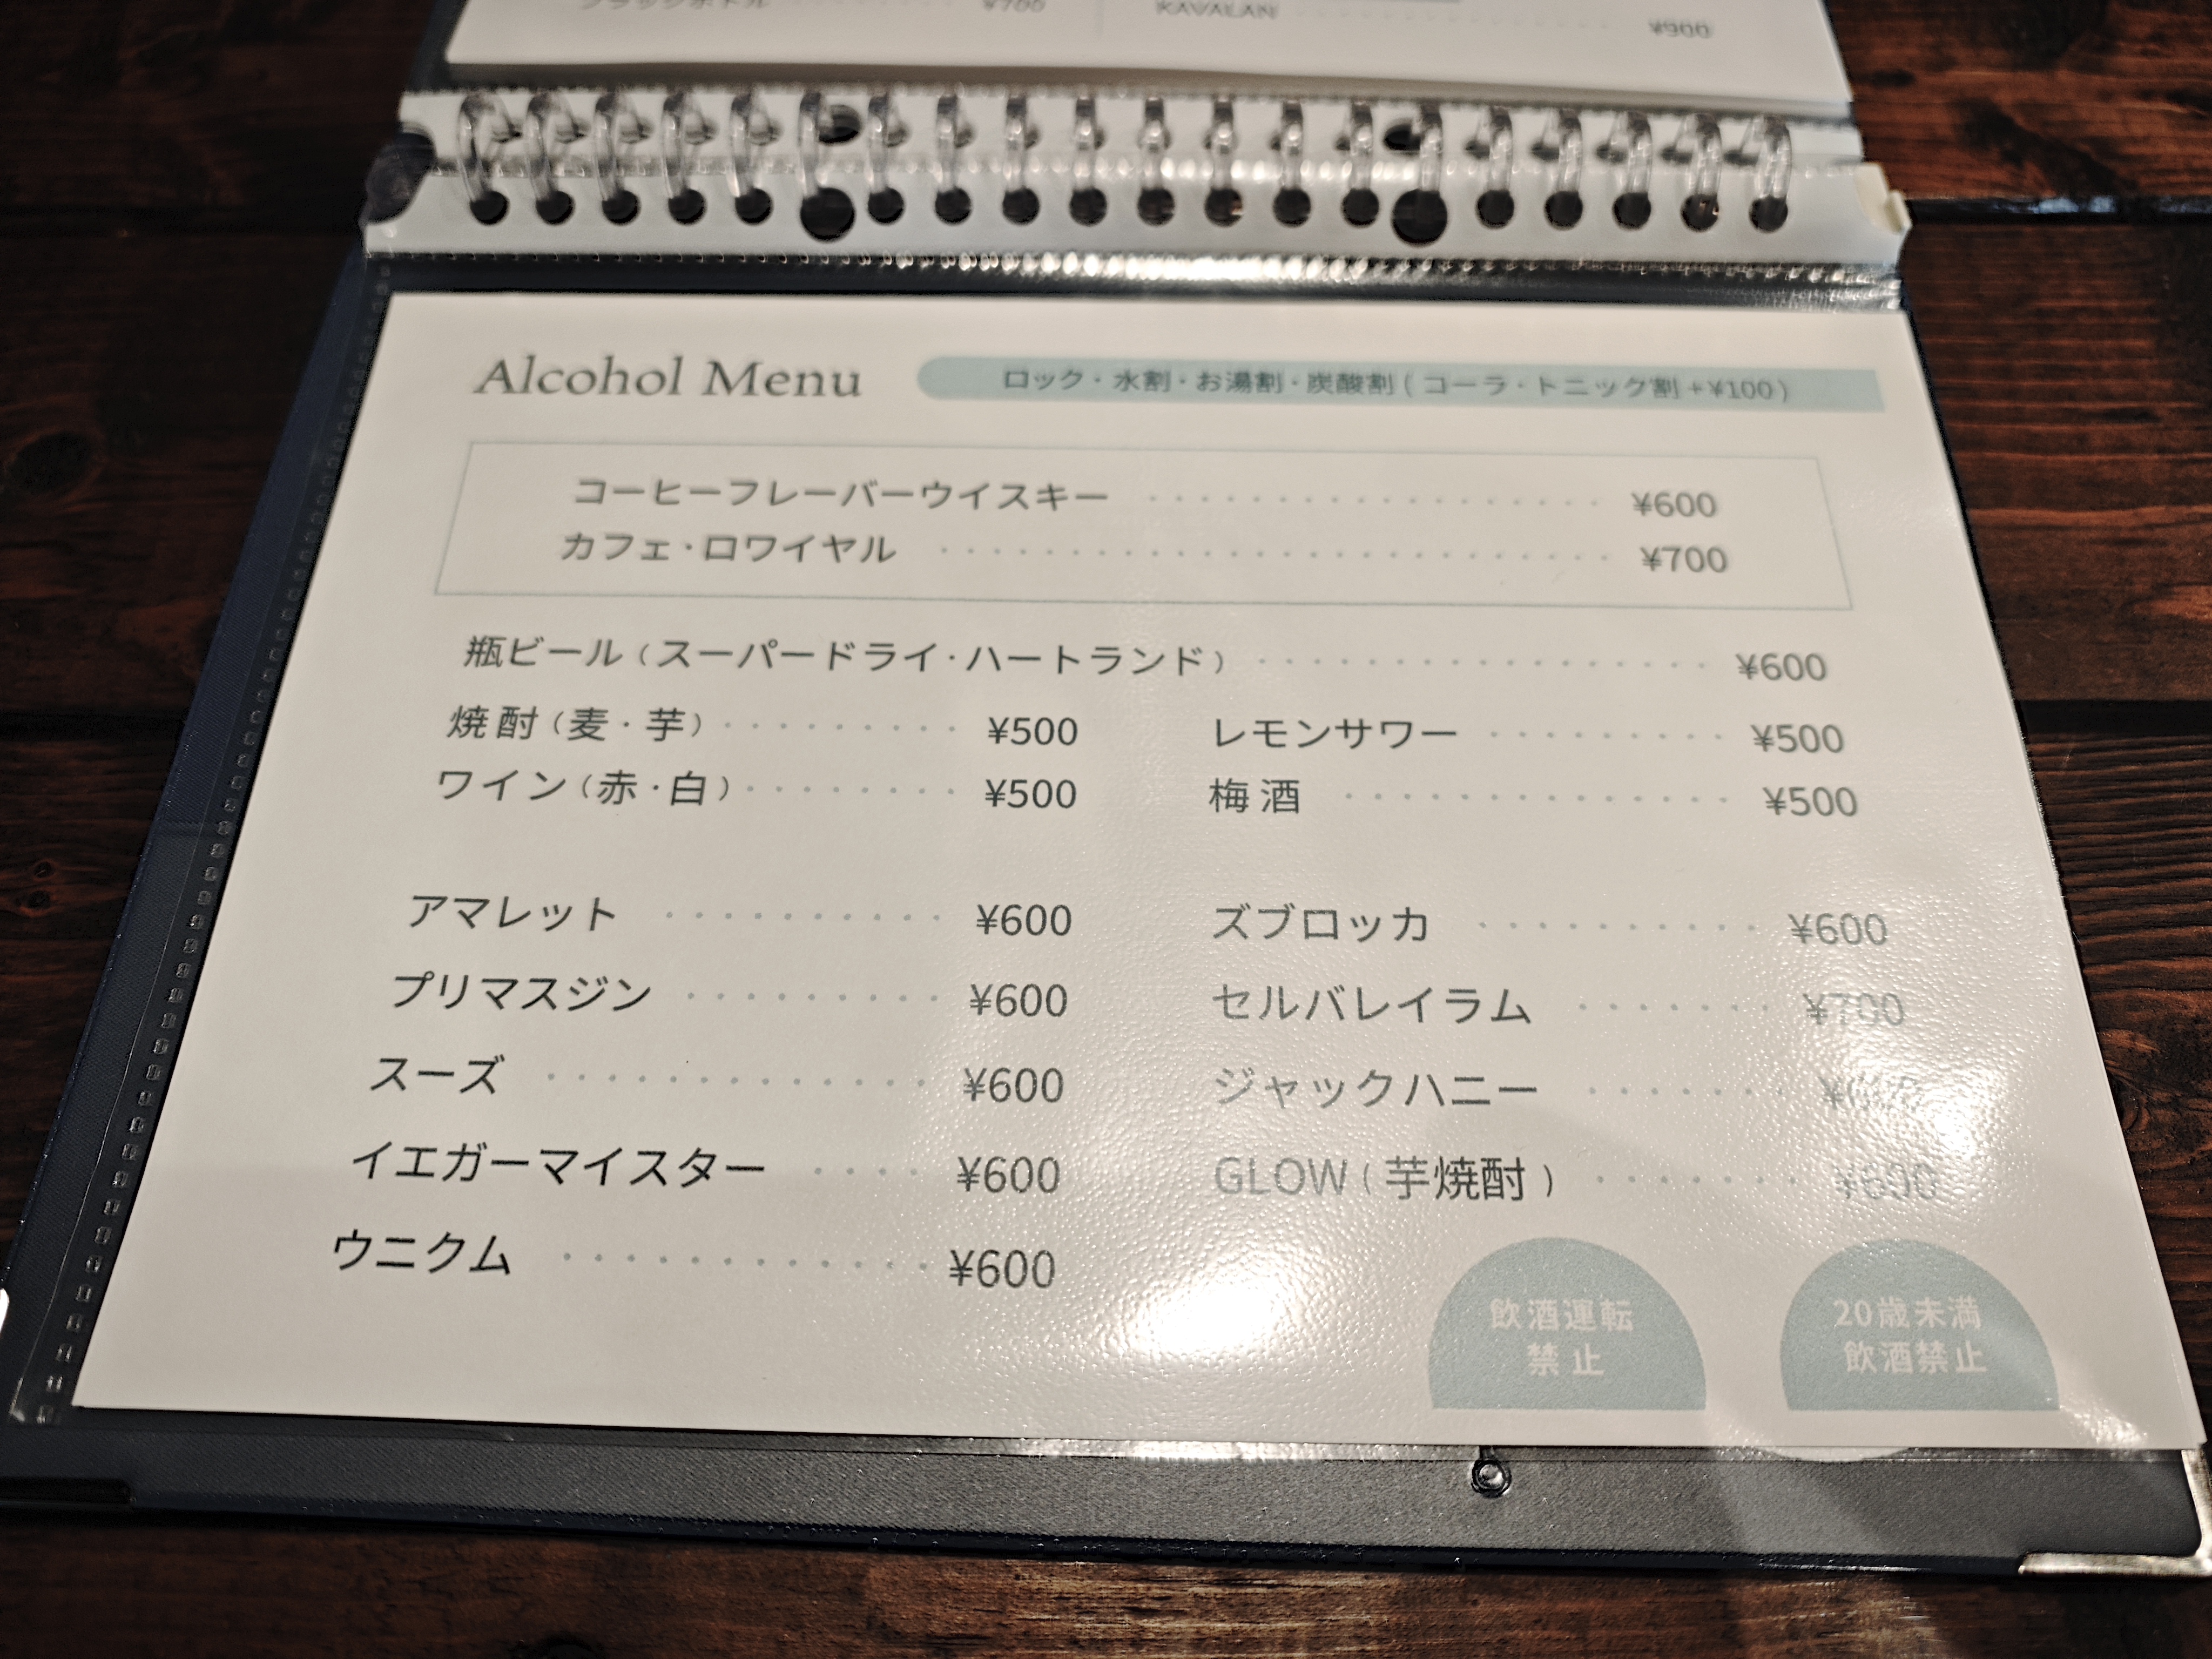 ブラックボトル ¥700
KAVALAN ¥900
Alcohol Menu
ロック・水割・お湯割・炭酸割 ( コーラ・トニック割 +¥100 )
コーヒーフレーバーウイスキー ¥600
カフェ・ロワイヤル ¥700
瓶ビール ( スーパードライ・ハートランド ) ¥600
焼酎 ( 麦・芋 ) ¥500
レモンサワー ¥500
ワイン ( 赤・白 ) ¥500
梅酒 ¥500
アマレット ¥600
ズブロッカ ¥600
プリマスジン ¥600
セルバレイラム ¥700
スーズ ¥600
ジャックハニー
イエガーマイスター ¥600
GLOW ( 芋焼酎 ) ¥600
ウニクム ¥600
飲酒運転
禁止
20歳未満
飲酒禁止